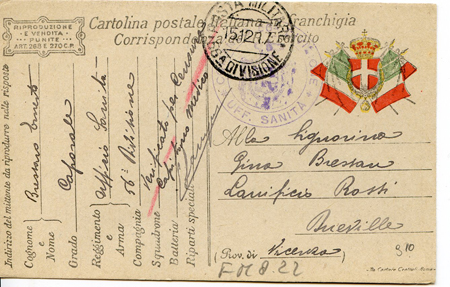 RIPRODUZIONE
E VENDITA
PUNITE
ART. 268 E 270 C.P.
Cartolina postale Italiana in franchigia
Corrispondenza Esercito
POSTA MILITARE
15.12.17
DIVISIONE
UFF. SANITÀ
Indirizzo del mittente da riprodurre nelle risposte
Cognome e Nome Bressan
Grado Caporale
Reggimento e Arma Ufficio Sanità
Compagnia Divisione
Squadrone Verificato per Censura
Batteria Capitano Medico
Riparti speciali
Alla Signorina
Gina Bressan
Lanificio Rossi
(Prov. di Vicenza
310
FM 8.22